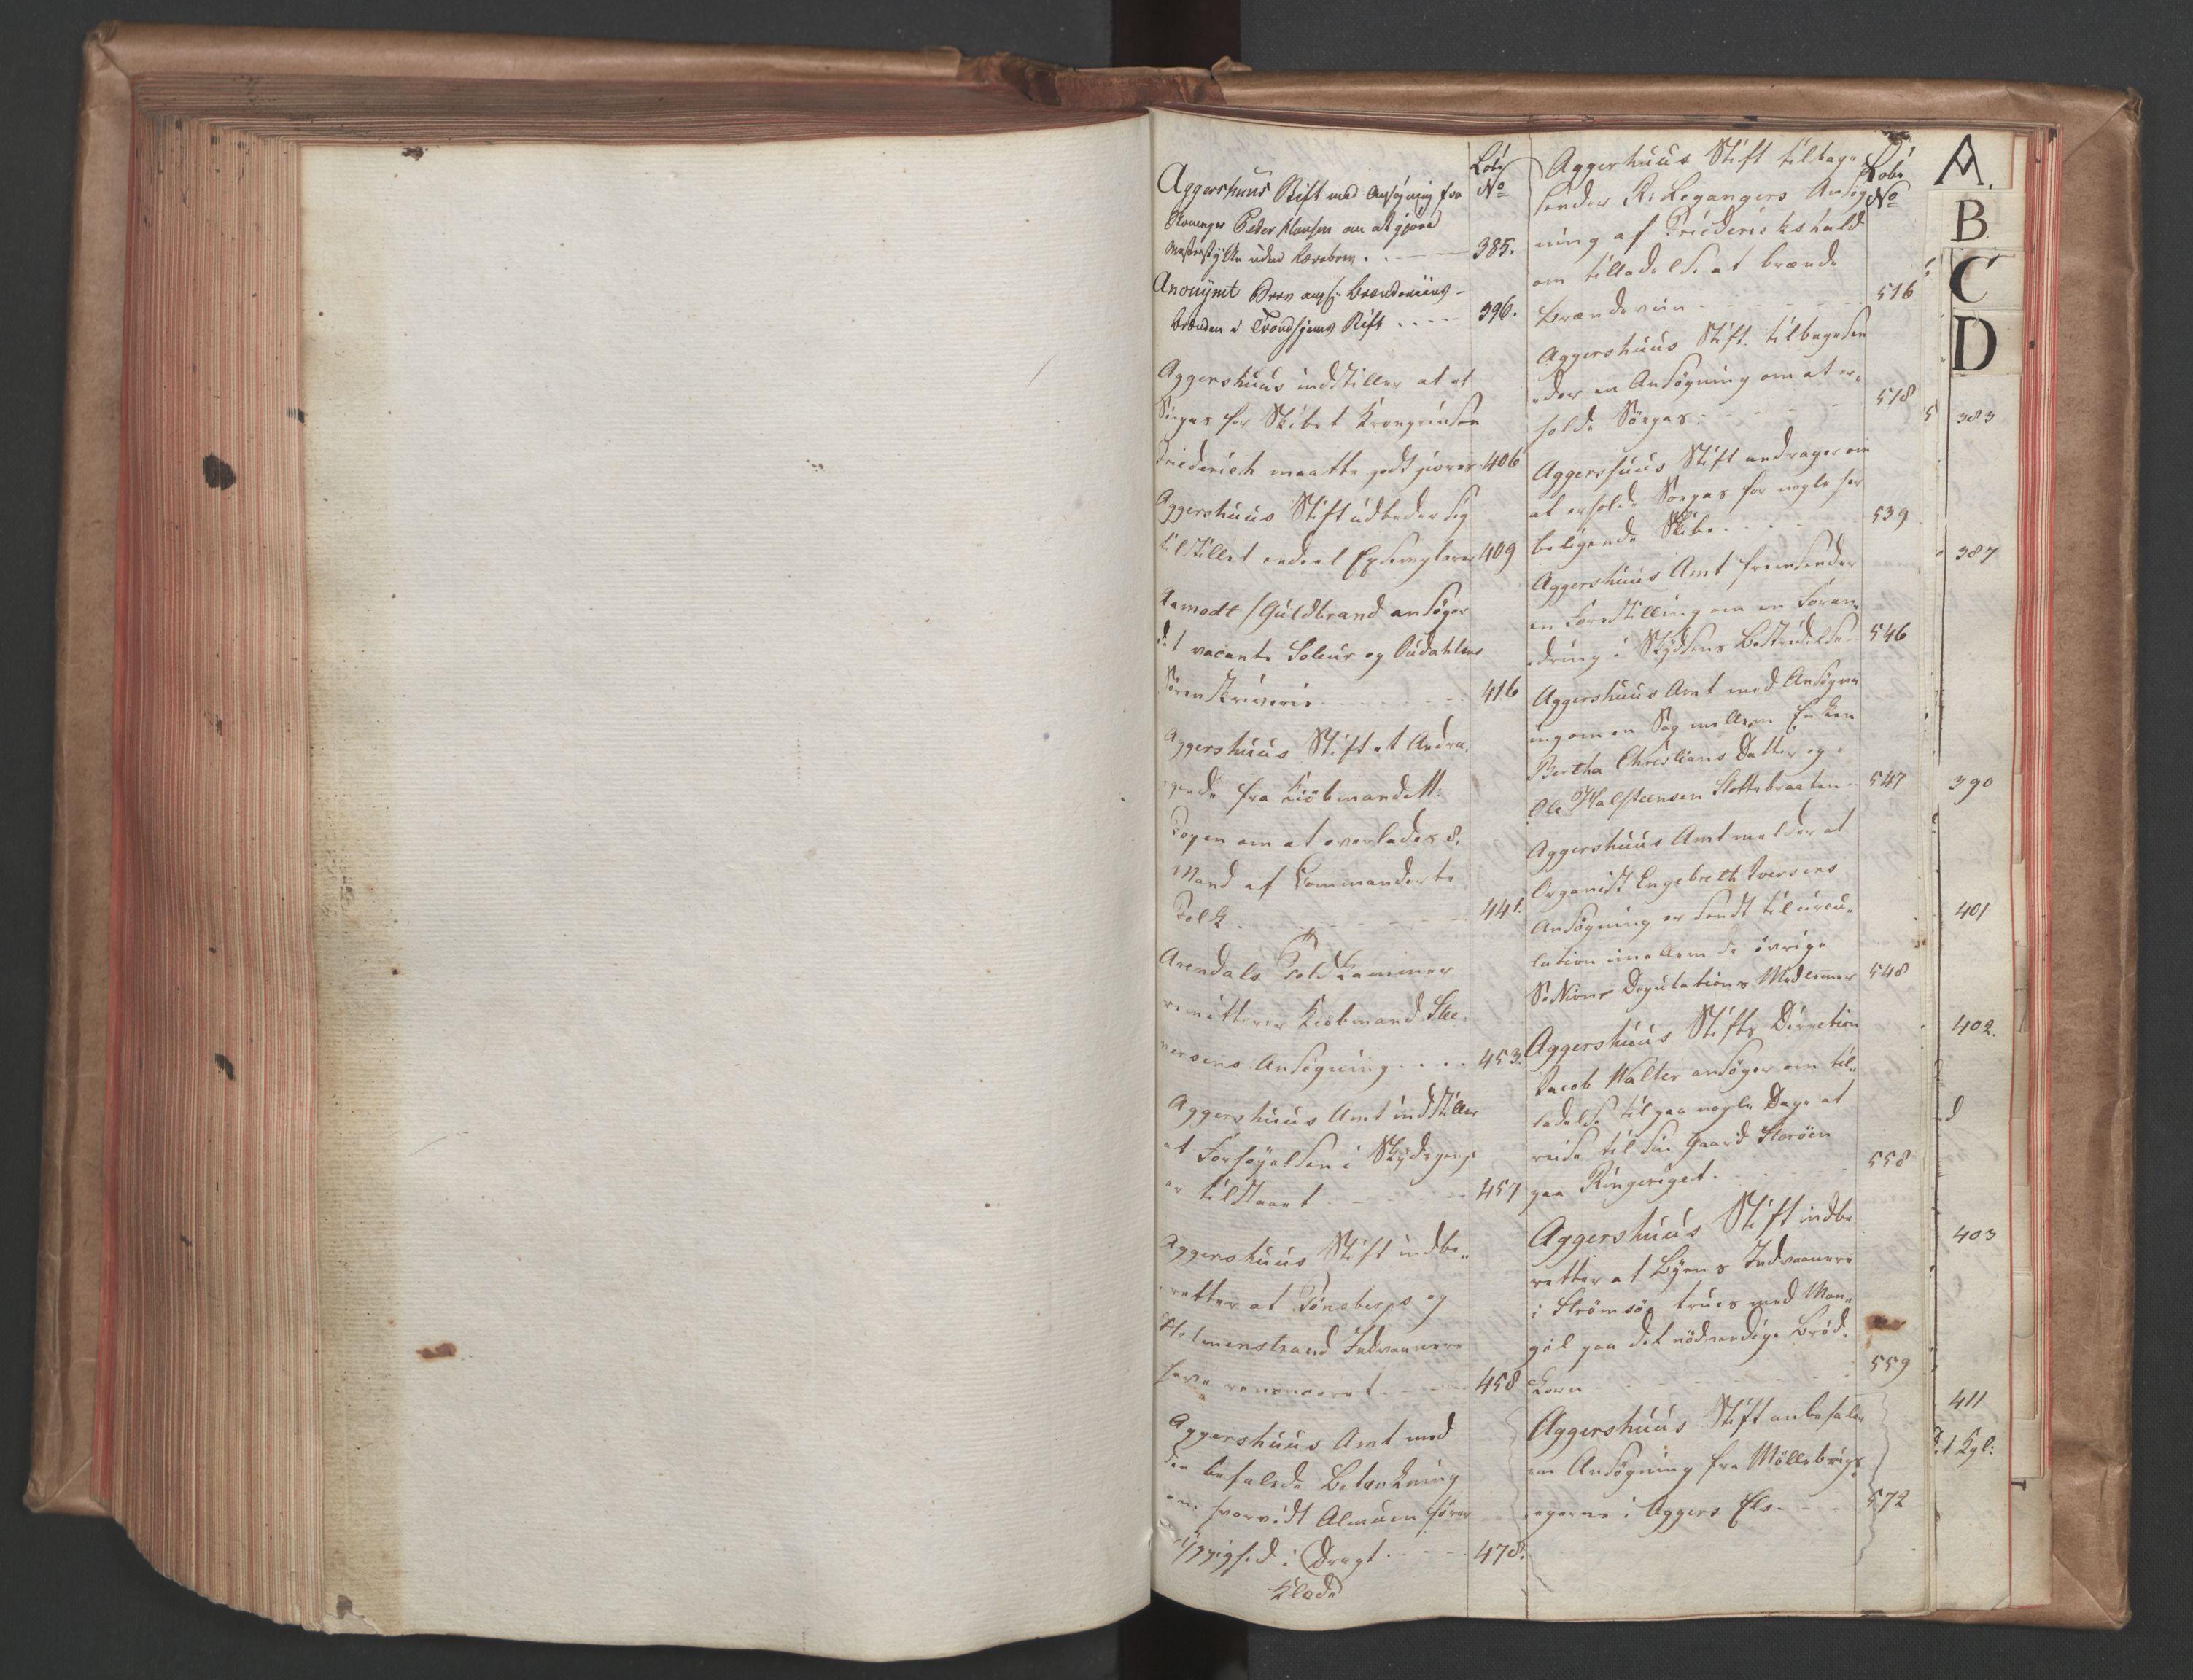 Löbe
No
Aggershuus Stift med Ansøgning fra
Peder Hansen om at gjøre
Mesterstykke uden Lærebrev . . - - - 385.
Anonymt Brev ang: Brændeviins-
brænden i Trondhjems Stift . . - - - 396.
Aggershuus indstiller at et
Söepas for Skibet Kronprindsen
Friederich maatte godtgiøres 406
Aggershuus Stift udbeder sig
tilstillet endeel Exemplarer 409
Aamodt /Guldbrand ansöger
det vacante Soleur og Oudahlens
Sörenskriverie - - - - - 416
Aggershuus Stift et Andra„
gende fra Kiöbmand
om at overlades 8.
Mand af Commanderte
Folk - - - - - 441.
Arendals Told Kammer
remitterer Kiöbmand Ste
versens Ansögning . . . . 453.
Aggershuus Amt indstiller
at Forhöyelsen i Skydspenge
er tilstaaet - - - - - 457
Aggershuus Stift indbe„
retter at Tönsbergs og
Holmenstrand Indvaanere
have renonceret - - - - 458
Aggershuus Amt med
den befalede Betænkning
om hvorvidt Almuen fører
Yppighed i Dragt . - - - 478.
Klæde
Löbe
No
Aggershuus Stift tilbage„
sender R. Legangers Ansög
ning af Friederichshald
om tilladelse at brænde
Brændeviin - - - - - 516
Aggershuus Stift tilbagesen
„der en Ansögning om at er„
holde Söepas - - - - - 518
Aggershuus Stift andrager om
at erholde Söepas for nogle her
beliggende Skibe - - - - 539
Aggershuus Amt fremsender
en Forestilling om en Foran„
dring i Skydsens Bestridelse 546
Aggershuus Amt med Ansögn
ing om en Sag mellem Enken
Bertha Christians Datter og
Ole Halsteensen Slottebraaten - 547
Aggershuus Amt melder at
Organist Engebreth Iversens
Ansögning er sendt til circu„
lation imellem de övrige
Deputations Medlemmer 548
Aggershuus Stifts Direction
Jacob Walter ansöger om til„
ladelse til paa nogle Dage at
reise til sin Gaard Storöen
paa Ringeriget . - - - 558
Aggershuus Stift indbe
retter at Byens Indvaanere
i Strömsöe trues med Man„
gel paa det nödvendige Bröd„
Korn - - - - - 559
Aggershuus Stift anbefaler
en Ansögning fra Möllebrugs
eyerne i Aggers Elv - - - 572
A.
B
C
D
383
387
390
401
402.
403
411
Kgl: